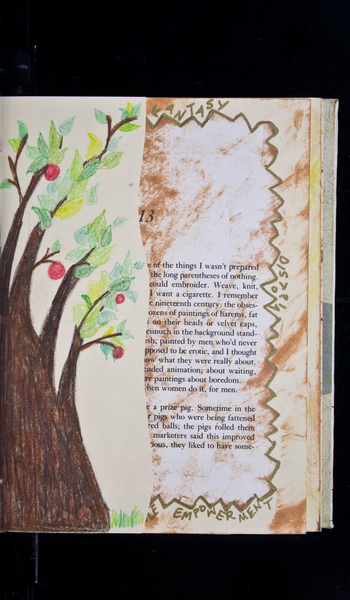 FANTASY
13
e of the things I wasn't prepared
the long parentheses of nothing.
could embroider. Weave, knit,
I want a cigarette. I remember
nineteenth century: the obses-
ozens of paintings of harems, fat
on their heads or velvet caps,
eunuch in the background stand-
esh, painted by men who'd never
pposed to be erotic, and I thought
ow what they were really about.
ended animation; about waiting,
re paintings about boredom.
hen women do it, for men.
e a prize pig. Sometime in the
pigs who were being fattened
red balls; the pigs rolled them
marketers said this improved
ious, they liked to have some-
EMPOWERMENT